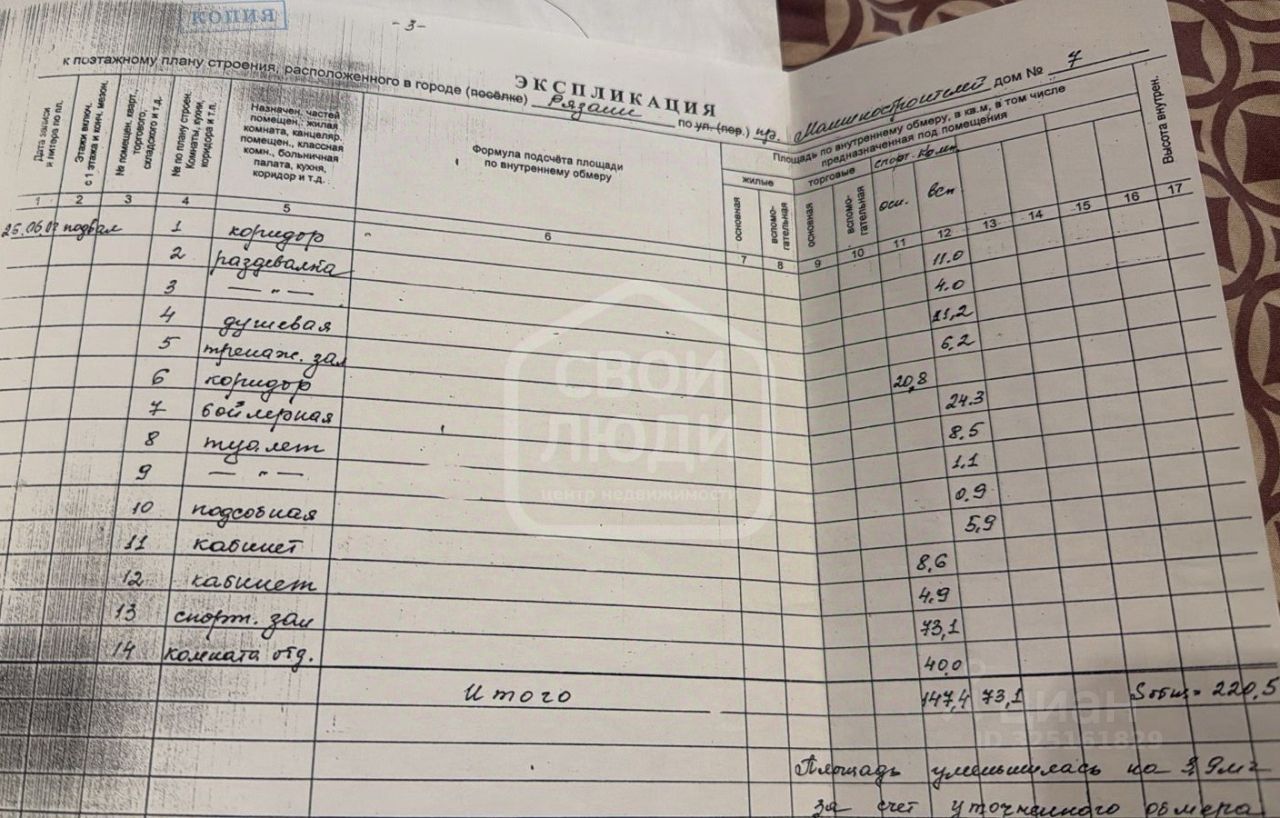 КОПИЯ
- 3 -
ЭКСПЛИКАЦИЯ
к поэтажному плану строения, расположенного в городе (посёлке) Рязани по ул. (пер.) пр. Машиностроителей дом № 7
Дата записи и литера по пл.
Этажи включ. с 1 этажа и конч. мезон.
№ помещен. кварт. торгового, складского и т.д.
№ по плану строен. Комнаты, кухни, коридора и т.п.
Назначен. частей помещен.: жилая комната, канцеляр. помещен., классная комн., больничная палата, кухня, коридор и т.д.
Формула подсчёта площади по внутреннему обмеру
Площадь по внутреннему обмеру, в кв.м, в том числе предназначенная под помещения
Высота внутрен.
жилые торговые спорт. комп
основная вспомо- гательная основная вспомо- гательная осн. всп
1 2 3 4 5 6 7 8 9 10 11 12 13 14 15 16 17
подвал 1 коридор 11.0
2 раздевалка 4.0
3 — " — 11,2
4 душевая 6.2
5 тренаж. зал 20,8
6 коридор 24.3
7 бойлерная 8.5
8 туалет 1.1
9 — " — 0.9
10 подсобная 5,9
11 кабинет 8,6
12 кабинет 4.9
13 спорт. зал 73,1
14 комната отд. 40.0
Итого 147,4 73,1 Sобщ = 220,5
Площадь уменьшилась на 9м2
за счет уточненного обмера
СВОИ
ЛЮДИ
центр недвижимости
циан
ID 325161829